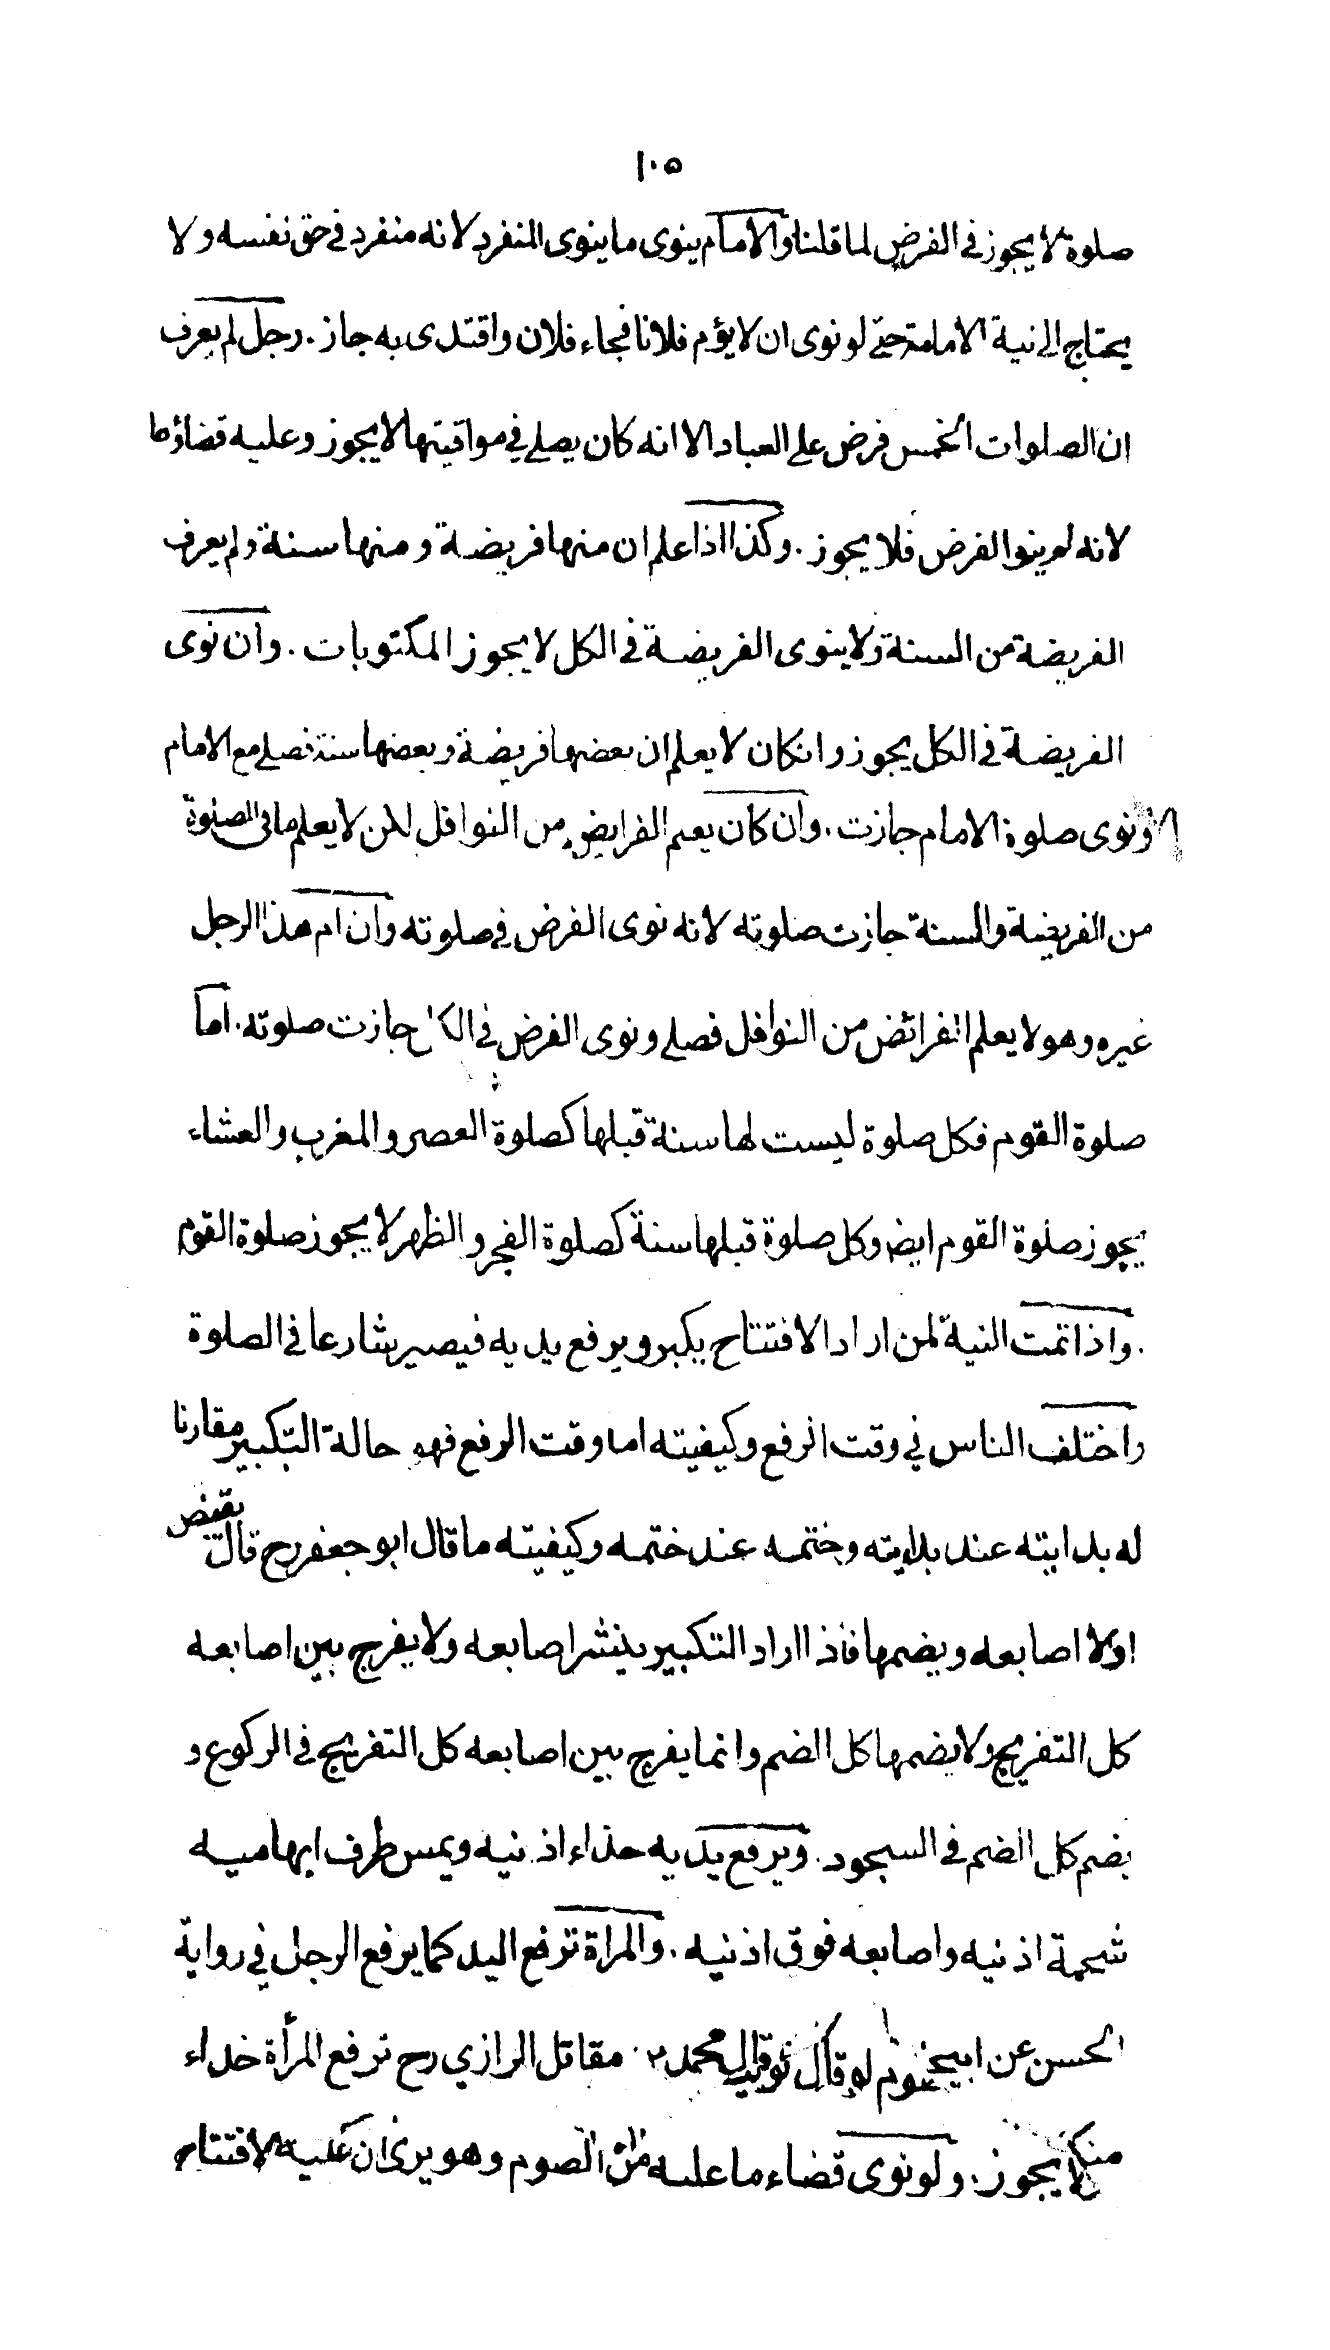 ١٠٥
صلوة لا يجوز في الفرض لما قلنا والامام ينوى ما ينوى المنفرد لانه منفرد في حق نفسه ولا
يحتاج الى نية الامامة حتى لو نوى ان لا يؤم فلانا فجاء فلان واقتدى به جاز. رجل لم يعرف
ان الصلوات الخمس فرض على العباد الا انه كان يصلي في مواقيتها لا يجوز وعليه قضاؤها
لانه لم ينوا الفرض فلا يجوز. وكذا اذا علم ان منها فريضة ومنها سنة ولم يعرف
الفريضة من السنة ولا ينوى الفريضة في الكل لا يجوز المكتوبات. وان نوى
الفريضة في الكل يجوز وانكان لا يعلم ان بعضها فريضة وبعضها سنة فصلى مع الامام
ونوى صلوة الامام جازت. وان كان يعلم الفرايض من النوافل لكن لا يعلم ما في الصلوة
من الفريضة والسنة جازت صلوته لانه نوى الفرض في صلوته وان ام هذا الرجل
غيره وهو لا يعلم الفرائض من النوافل فصلى ونوى الفرض في الكل جازت صلوته. اما
صلوة القوم فكل صلوة ليست لها سنة قبلها كصلوة العصر والمغرب والعشاء
يجوز صلوة القوم ايضا وكل صلوة قبلها سنة كصلوة الفجر والظهر لا يجوز صلوة القوم
. واذا تمت النية لمن اراد الافتتاح يكبر ويرفع يديه فيصير شارعا في الصلوة
واختلف الناس في وقت الرفع وكيفيته اما وقت الرفع فهو حالة التكبير مقارنا
له بدايته عند بدايته وختمه عند ختمه وكيفيته ما قال ابو جعفر رح قال يقبض
اولا اصابعه ويضمها فاذا اراد التكبير ينشر اصابعه ولا يفرج بين اصابعه
كل التفريج ولا يضمها كل الضم وانما يفرج بين اصابعه كل التفريج في الركوع و
يضم كل الضم في السجود. ويرفع يديه حذاء اذنيه ويمس طرف ابهاميه
شحمة اذنيه واصابعه فوق اذنيه. والمراة ترفع اليد كما يرفع الرجل في رواية
الحسن عن محمد مقاتل الرازي رح ترفع المرأة حذاء
لا يجوز. ولو نوى قضاء ما عليه من الصوم وهو يرى ان عليه